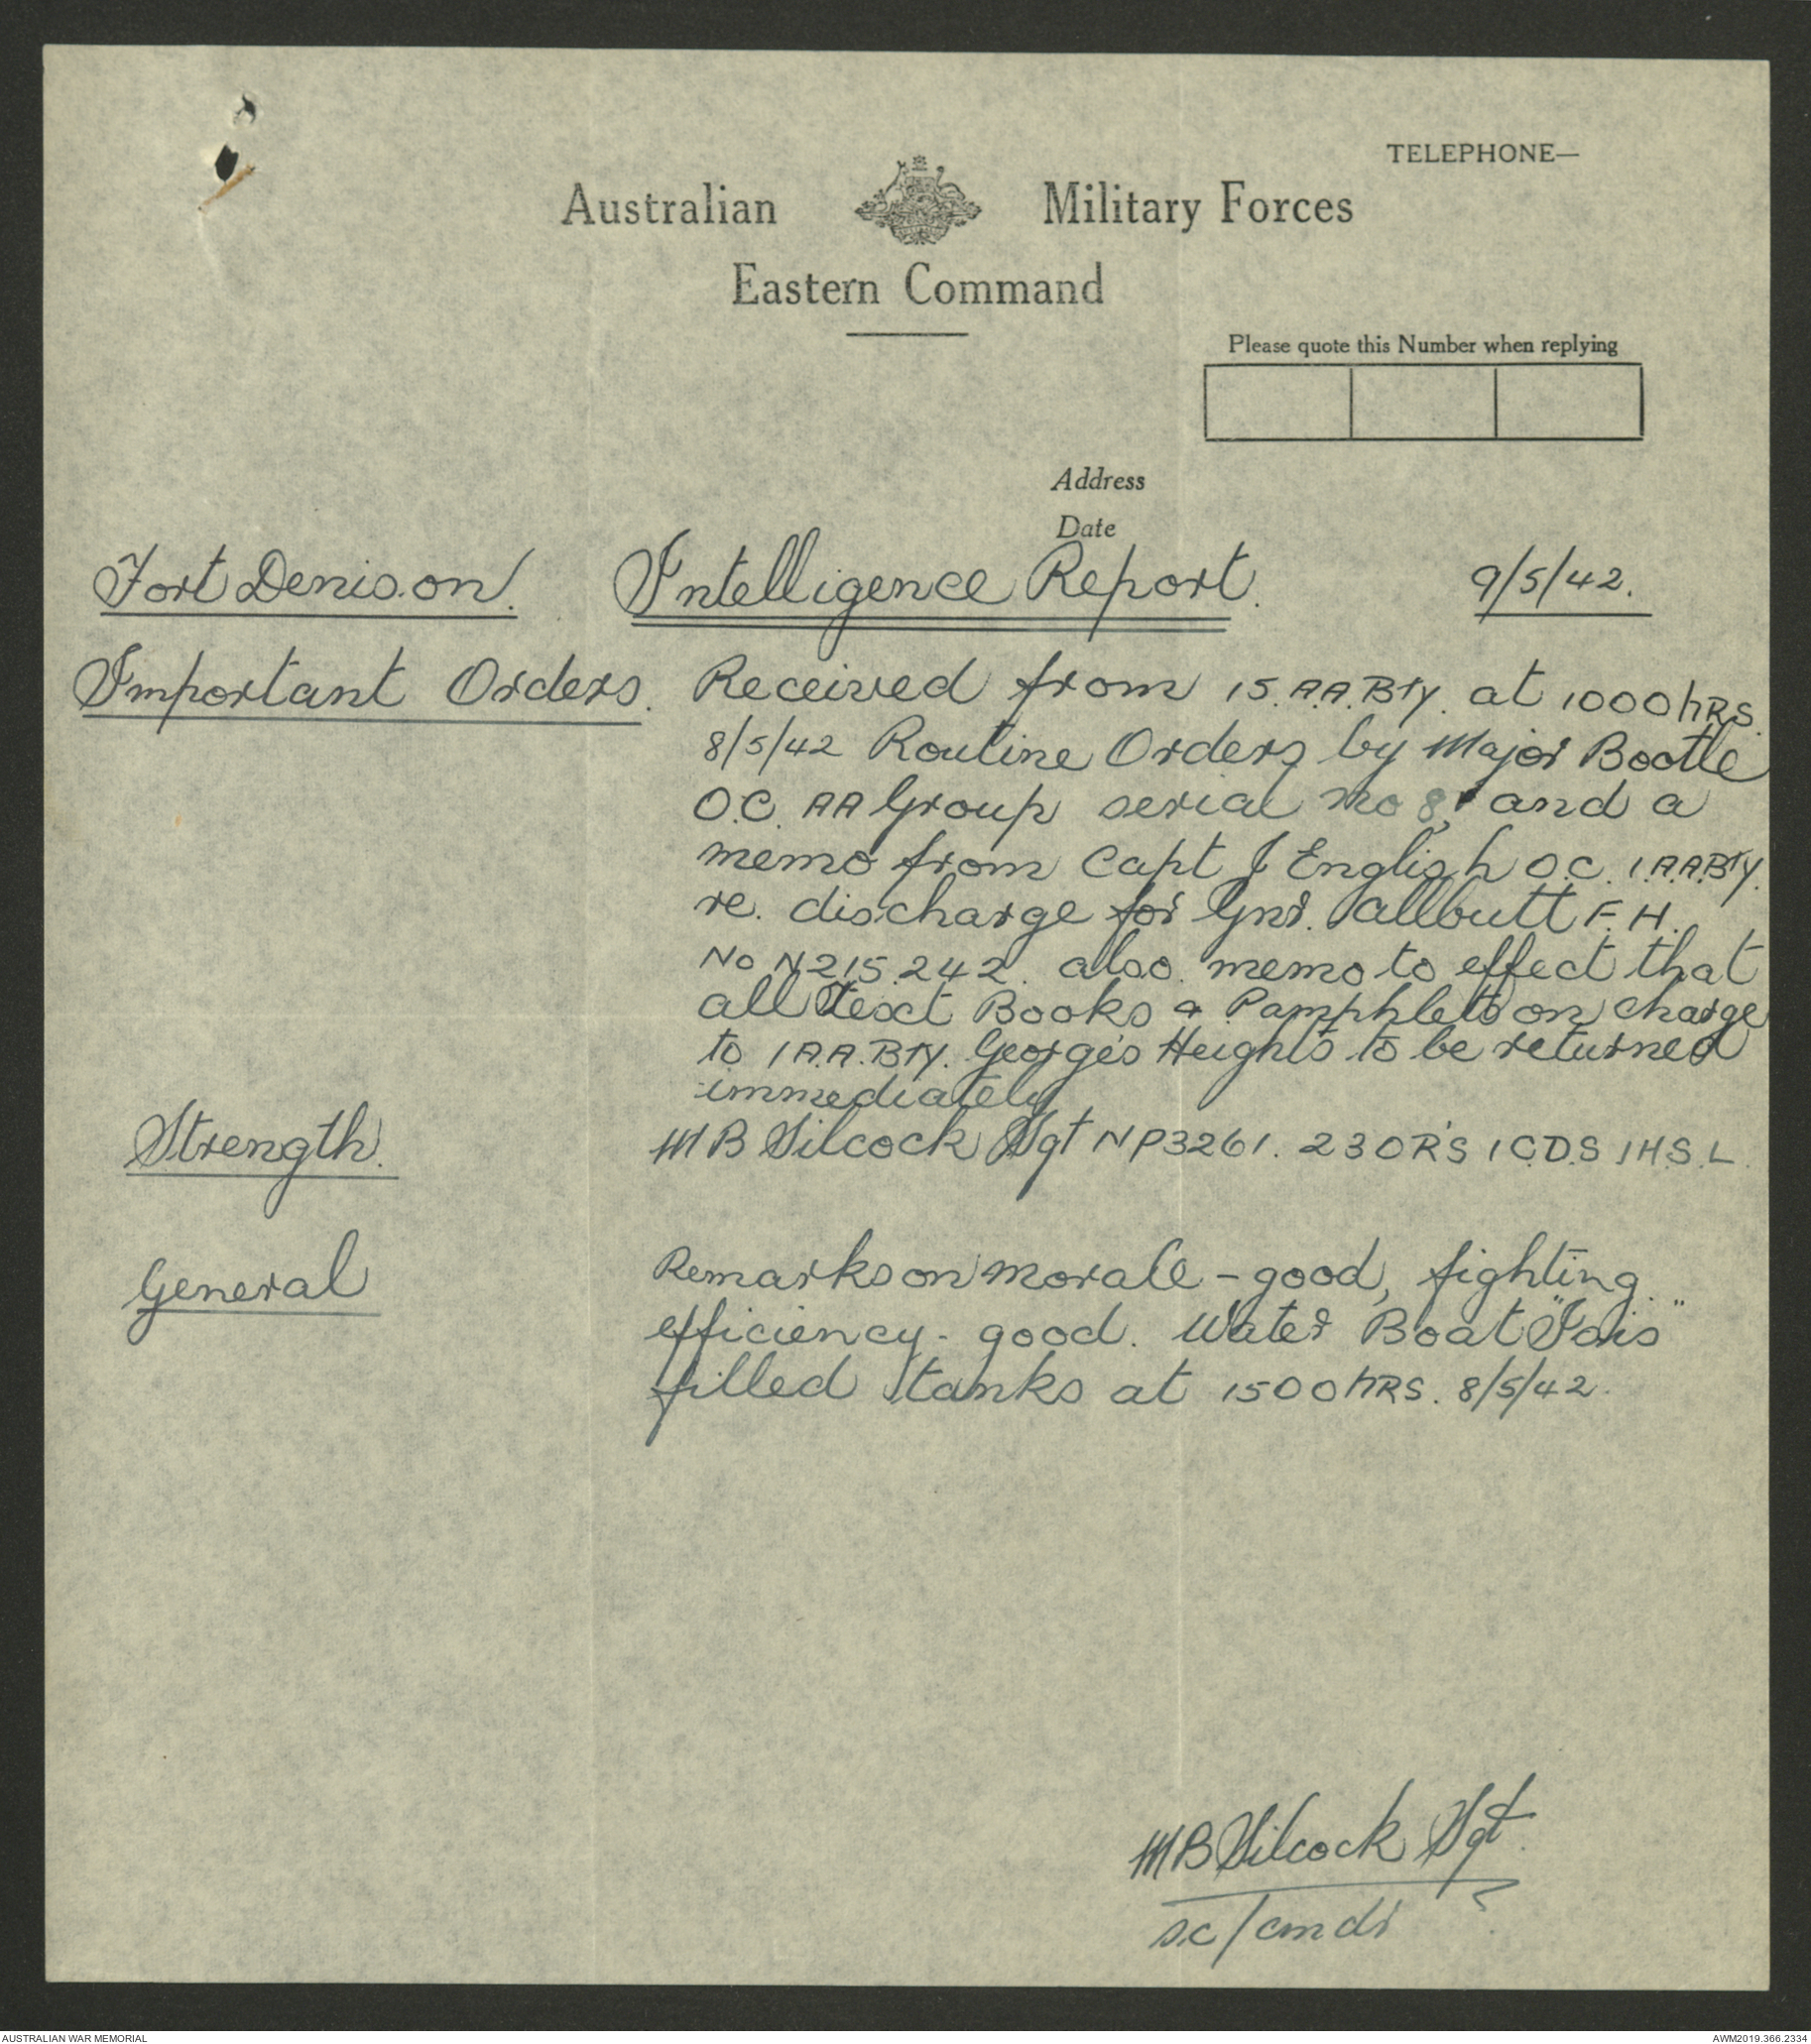 TELEPHONE—
Australian Military Forces
Eastern Command
Please quote this Number when replying
Address
Date
Fort Denison. Intelligence Report. 9/5/42.
Important Orders. Received from 15.A.A.BTY. at 1000 hRS.
8/5/42 Routine Orders by Major Bootle
O.C. AA Group serial No 8, and a
memo from Capt J English O.C. 1.A.A.BTY.
re. discharge for Gnr. Allbutt F. H.
No N215242. also memo to effect that
all Text Books & Pamphlets on charge
to 1 A.A.BTY. George's Heights to be returned
immediately
Strength. M B Silcock Sgt NP3261. 23 OR'S 1 C.D.S 1 H.S.L.
General Remarks on morale - good, fighting
efficiency - good. Water Boat "Isis"
filled tanks at 1500 hRS. 8/5/42.
M B Silcock Sgt.
sc/cmdr
AUSTRALIAN WAR MEMORIAL
AWM2019.366.2334